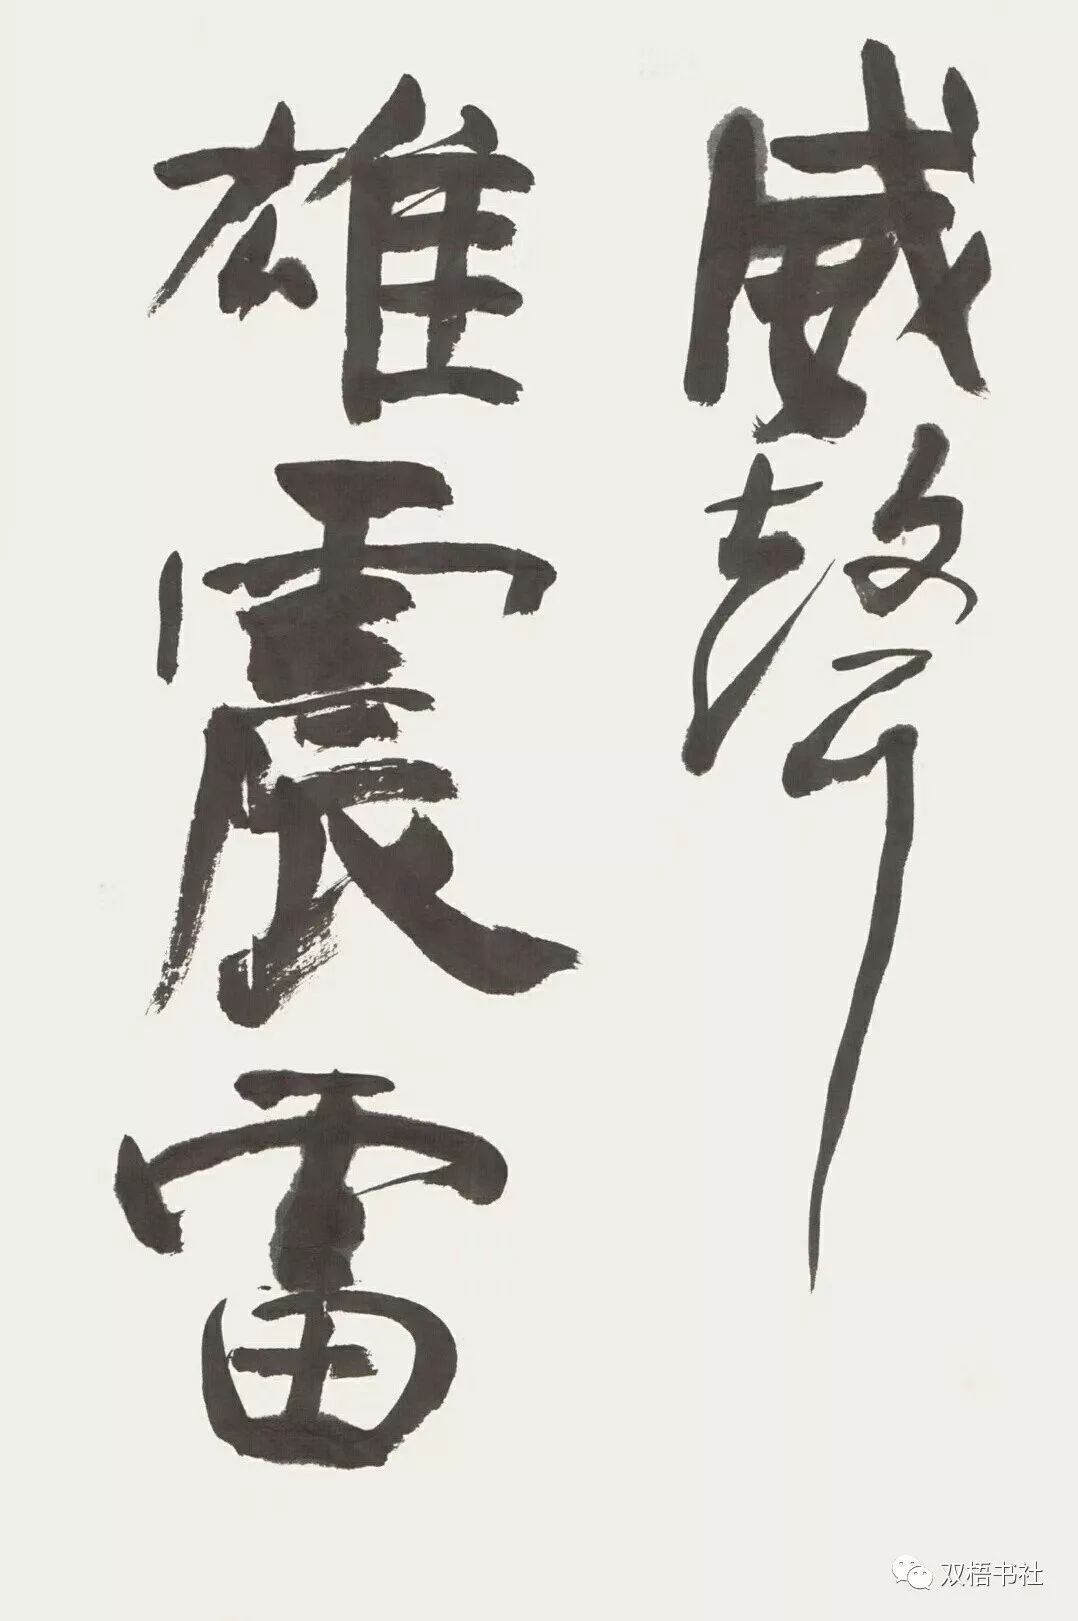 威聲
雄震雷
双梧书社